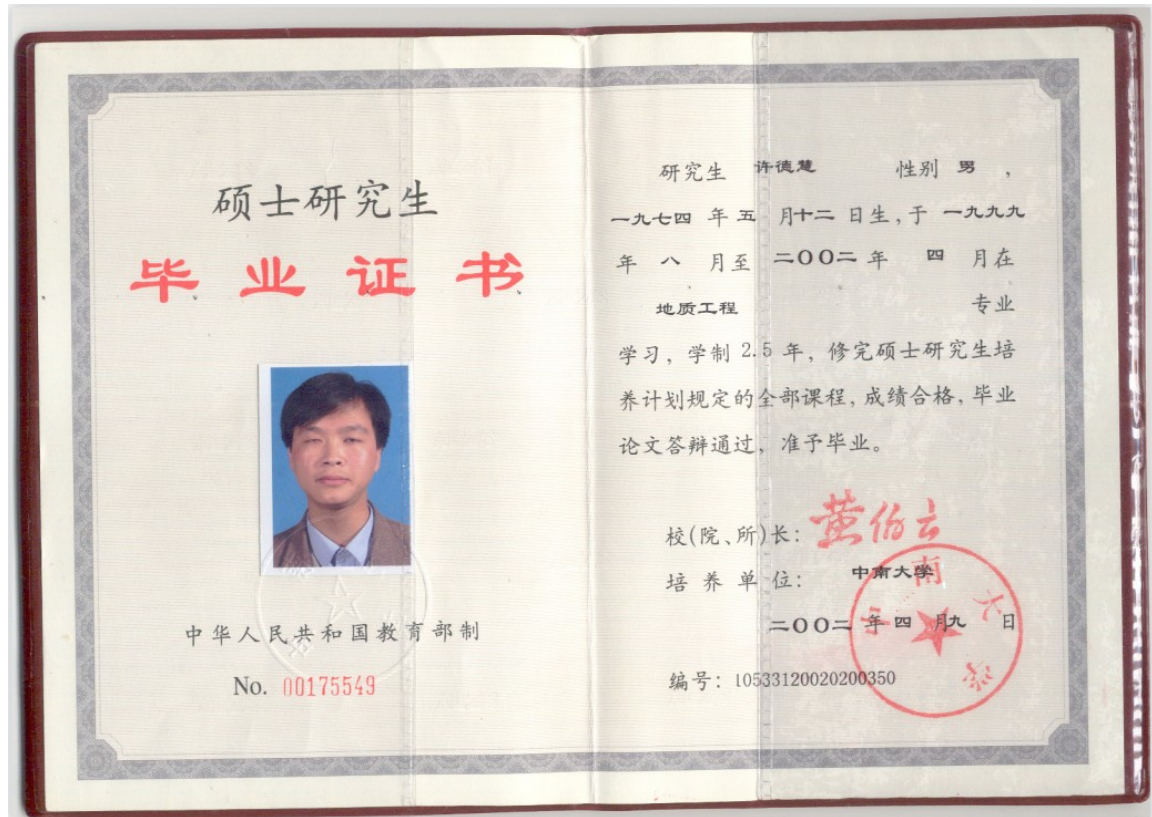 硕士研究生
毕业证书
中华人民共和国教育部制
No. 00175549
研究生 许德慧 性别 男，
一九七四 年 五 月十二 日生，于 一九九九
年 八 月至 二〇〇二 年 四 月在
地质工程 专业
学习，学制 2.5 年，修完硕士研究生培
养计划规定的全部课程，成绩合格，毕业
论文答辩通过，准予毕业。
校(院、所)长： 黄伯云
培养单位： 中南大学
二〇〇二 年 四 月九 日
编号：10533120020200350
中南大学